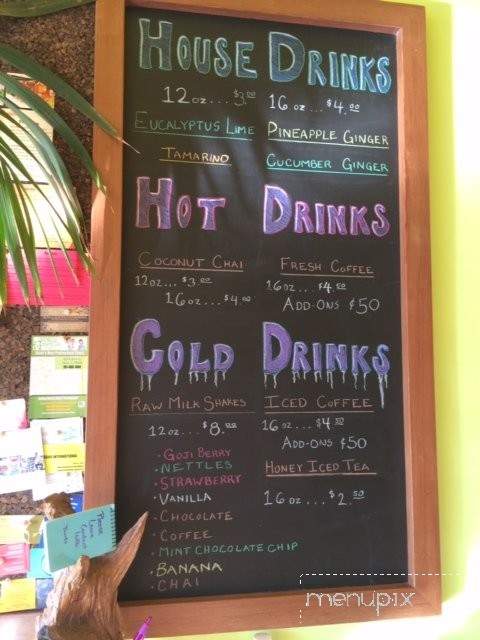 HOUSE DRINKS
12 oz... $3.00 16 oz... $4.00
EUCALYPTUS LIME
TAMARIND
PINEAPPLE GINGER
CUCUMBER GINGER
HOT DRINKS
COCONUT CHAI
12oz... $3.00
16oz... $4.00
FRESH COFFEE
16oz... $4.00
ADD-ONS $50
COLD DRINKS
RAW MILK SHAKES
12oz... $8.00
• GOJI BERRY
• NETTLES
• STRAWBERRY
• VANILLA
• CHOCOLATE
• COFFEE
• MINT CHOCOLATE CHIP
• BANANA
• CHAI
ICED COFFEE
16oz... $4.50
ADD-ONS $50
HONEY ICED TEA
16oz... $2.50
Please
Leave
menupix